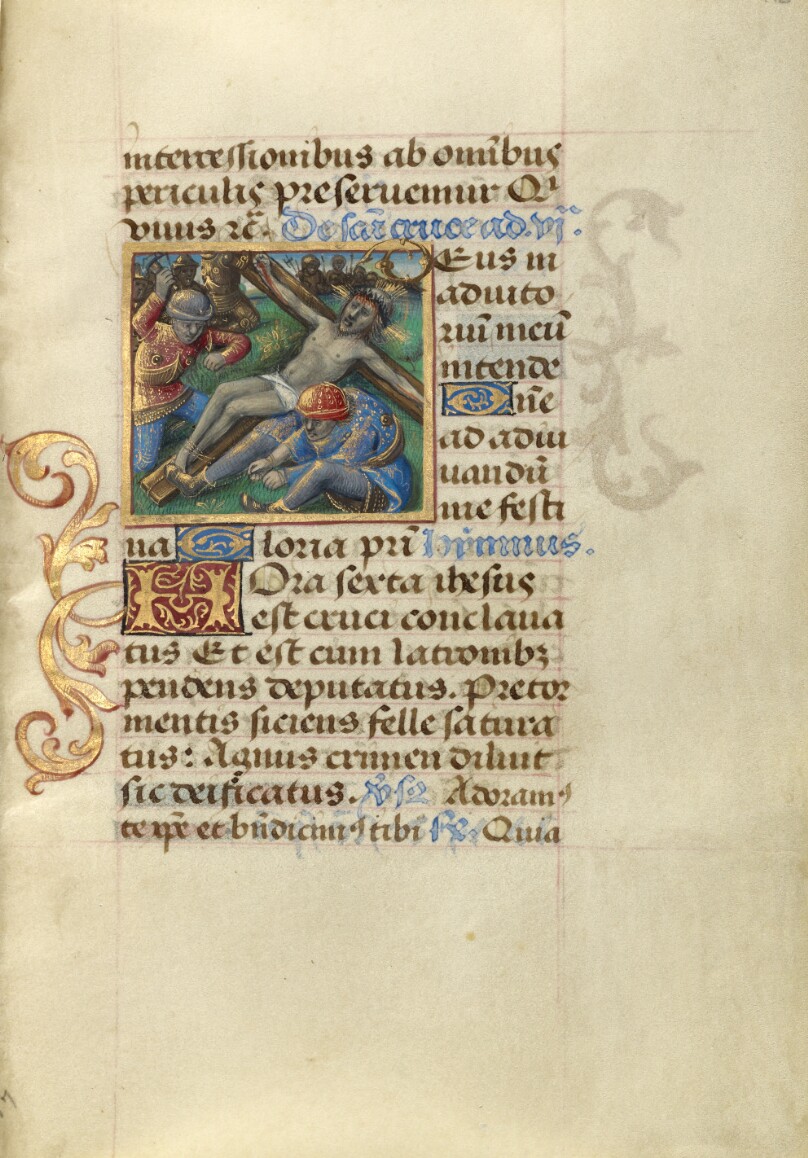 intercessionibus ab omībus
periculis preseruemur Q̄
viuus ⁊c̄. De sca᷑ cruce ad.vj.
Eus in
adiuto
riū meū
intende
Dn̄e
ad adiu
uandū
me festi
na Gloria pr̄i hȳmnus.
HOra sexta ihesus
est cruci conclaua
tus Et est cum latronibꝫ
pendens deputatus. Pre tor
mentis siciens felle satura
tus: Agnus crimen diluit
sic deificatus. v̄s Adoramꝰ
te xp̄e et bn̄dicimꝰ tibi R̄. Quia